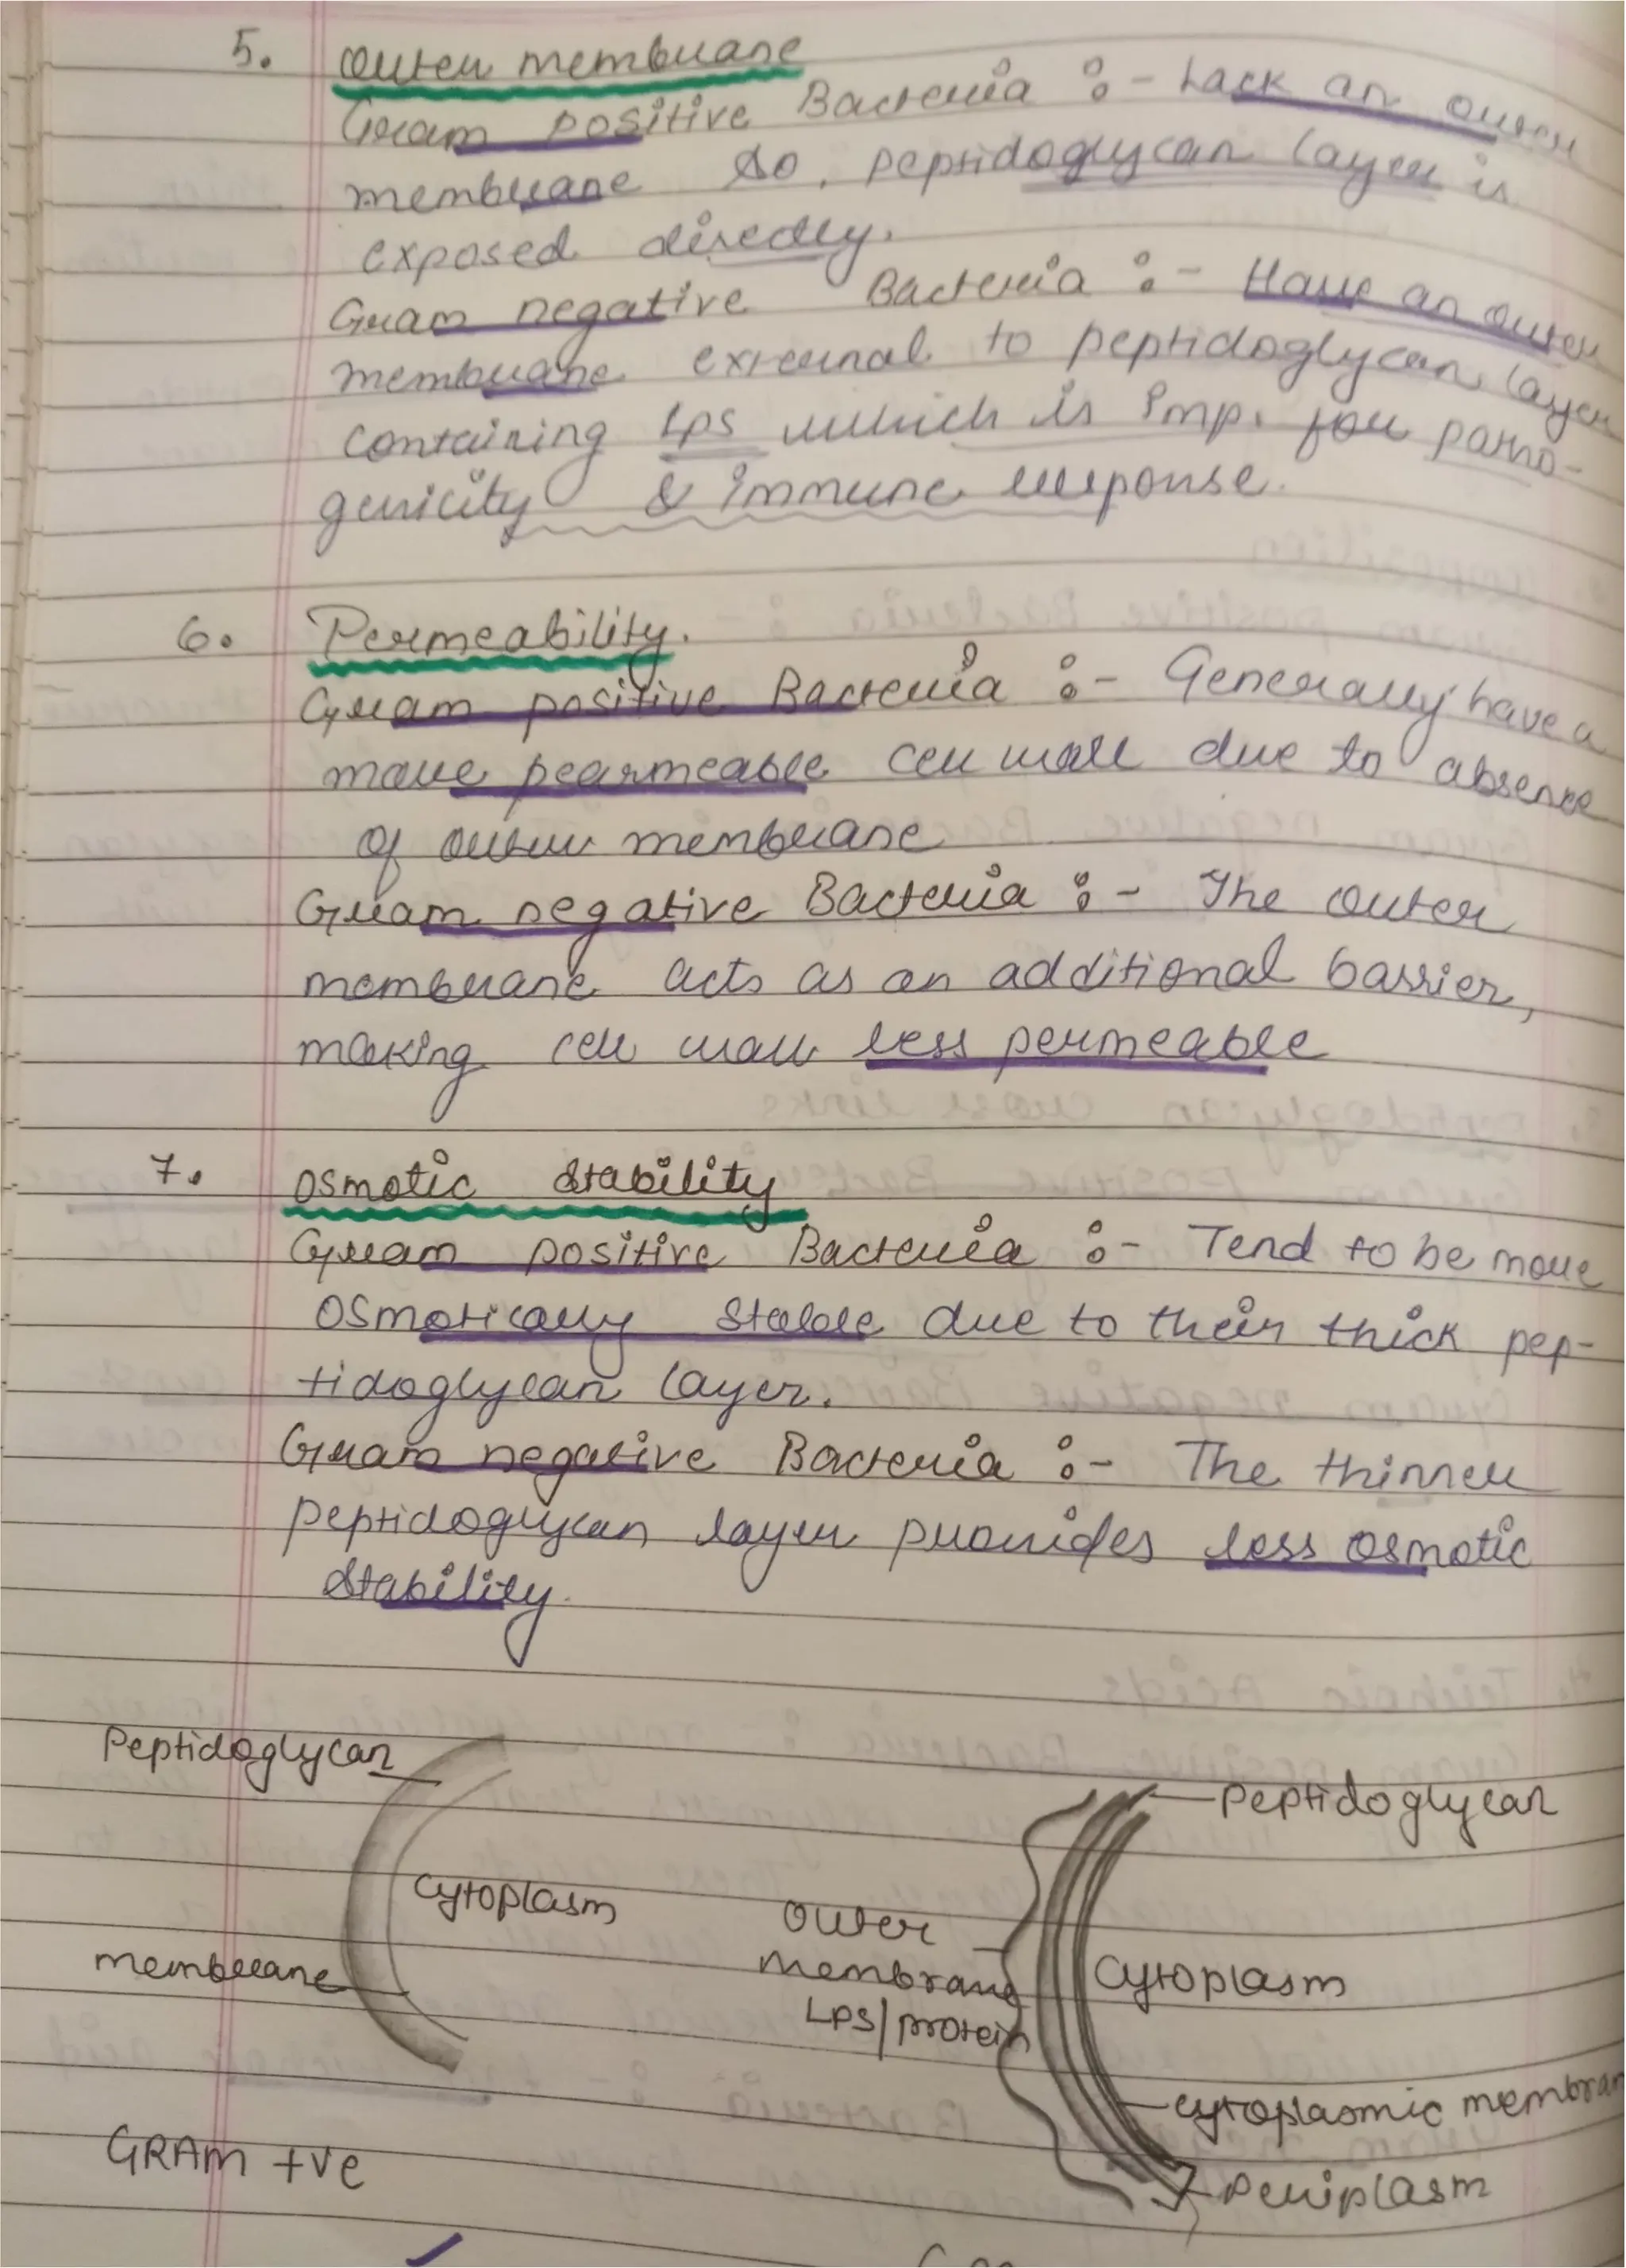 5. Outer membrane
Gram positive Bacteria :- Lack an outer
membrane so, peptidoglycan layer is
exposed directly.
Gram negative Bacteria :- Have an outer
membrane external to peptidoglycan layer
containing LPS which is imp. for patho-
genicity & immune response.
6. Permeability.
Gram positive Bacteria :- Generally have a
more pearmeable cell wall due to absence
of outer membrane
Gram negative Bacteria :- The outer
membrane acts as an additional barrier,
making cell wall less permeable
7. Osmotic stability
Gram positive Bacteria :- Tend to be more
osmotically stable due to their thick pep-
tidoglycan layer.
Gram negative Bacteria :- The thinner
peptidoglycan layer provides less osmotic
stability.
Peptidoglycan
cytoplasm
membrane
GRAM +ve
Peptidoglycan
Outer
membrane
LPS/protein
Cytoplasm
cytoplasmic membran
periplasm